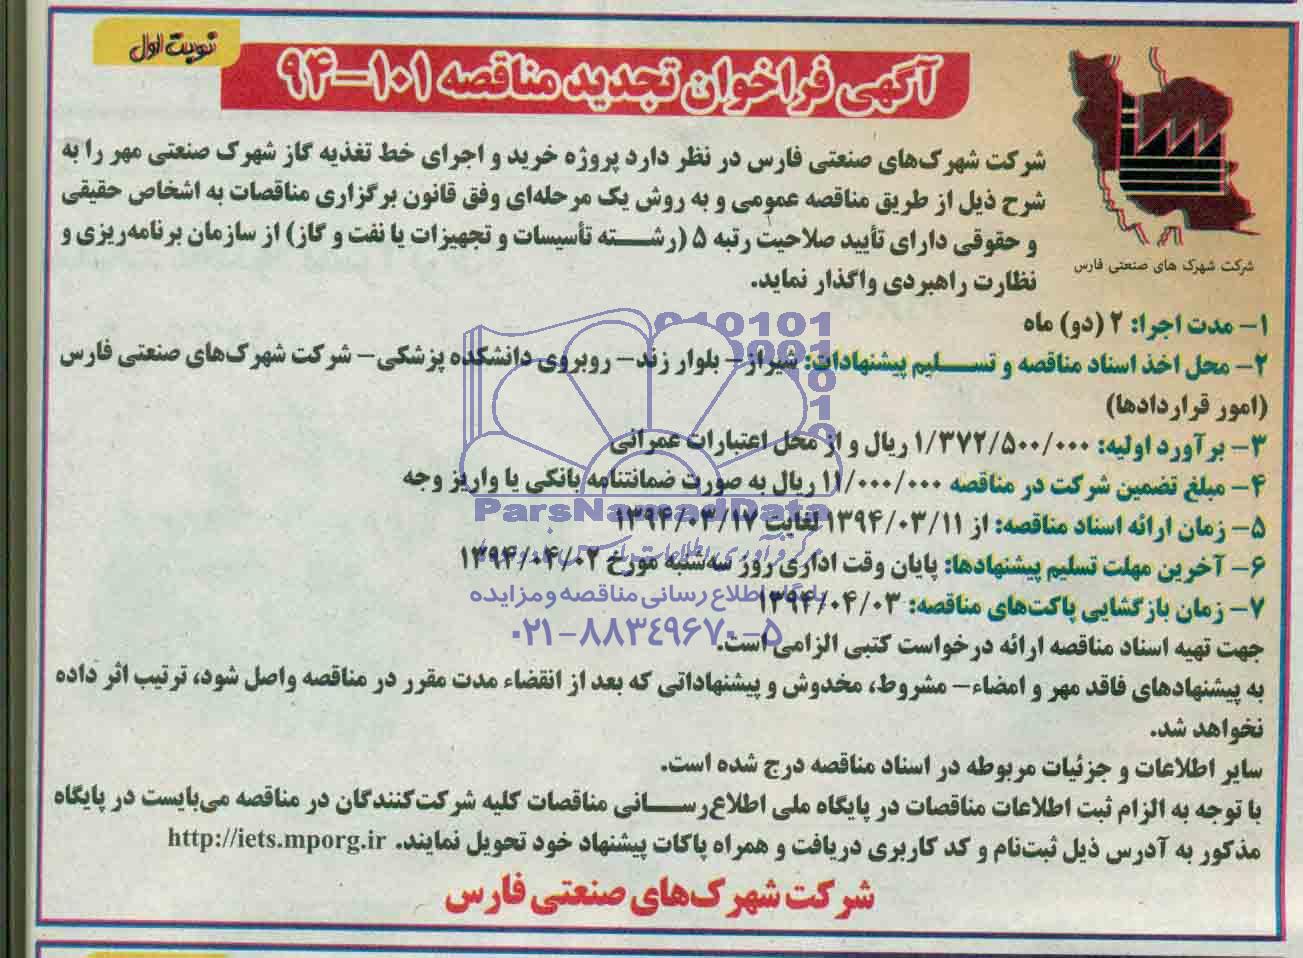 نوبت اول
آگهی فراخوان تجدید مناقصه ۱۰۱-۹۴
شرکت شهرک های صنعتی فارس
شرکت شهرک‌های صنعتی فارس در نظر دارد پروژه خرید و اجرای خط تغذیه گاز شهرک صنعتی مهر را به
شرح ذیل از طریق مناقصه عمومی و به روش یک مرحله‌ای وفق قانون برگزاری مناقصات به اشخاص حقیقی
و حقوقی دارای تأیید صلاحیت رتبه ۵ (رشته تأسیسات و تجهیزات یا نفت و گاز) از سازمان برنامه‌ریزی و
نظارت راهبردی واگذار نماید.
۱- مدت اجرا: ۲ (دو) ماه
۲- محل اخذ اسناد مناقصه و تسلیم پیشنهادات: شیراز- بلوار زند- روبروی دانشکده پزشکی- شرکت شهرک‌های صنعتی فارس
(امور قراردادها)
۳- برآورد اولیه: ۱/۳۷۲/۵۰۰/۰۰۰ ریال و از محل اعتبارات عمرانی
۴- مبلغ تضمین شرکت در مناقصه ۱۱/۰۰۰/۰۰۰ ریال به صورت ضمانتنامه بانکی یا واریز وجه
۵- زمان ارائه اسناد مناقصه: از ۱۳۹۴/۰۳/۱۱ لغایت ۱۳۹۴/۰۳/۱۷
۶- آخرین مهلت تسلیم پیشنهادها: پایان وقت اداری روز سه‌شنبه مورخ ۱۳۹۴/۰۴/۰۲
۷- زمان بازگشایی پاکت‌های مناقصه: ۱۳۹۴/۰۴/۰۳
جهت تهیه اسناد مناقصه ارائه درخواست کتبی الزامی است.
به پیشنهادهای فاقد مهر و امضاء- مشروط، مخدوش و پیشنهاداتی که بعد از انقضاء مدت مقرر در مناقصه واصل شود، ترتیب اثر داده
نخواهد شد.
سایر اطلاعات و جزئیات مربوطه در اسناد مناقصه درج شده است.
با توجه به الزام ثبت اطلاعات مناقصات در پایگاه ملی اطلاع‌رسانی مناقصات کلیه شرکت‌کنندگان در مناقصه می‌بایست در پایگاه
مذکور به آدرس ذیل ثبت‌نام و کد کاربری دریافت و همراه پاکات پیشنهاد خود تحویل نمایند. http://iets.mporg.ir
شرکت شهرک‌های صنعتی فارس
ParsNamadData
پایگاه اطلاع رسانی مناقصه و مزایده
۰۲۱-۸۸۳۴۹۶۷۰-۵